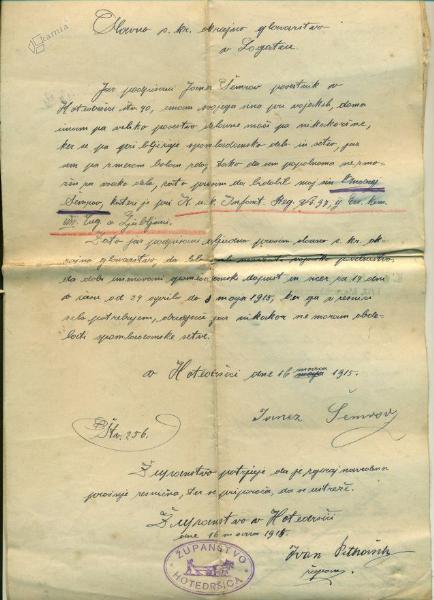 Slavno c. kr. okrajno glavarstvo
v Logatcu.
Jaz podpisani Janez Šemrov posestnik v
Hotedršici štv. 40, imam svojega sina pri vojakih, doma
imam pa veliko posestvo delavne moči pa nikakoršne,
ker se pa zdaj bližuje spomladansko delo in setev, jaz
sem pa zmeram bolan tako da sem popolnoma nezmo-
žen za vsako delo, zato prosim da bi dobil moj sin
Šemrov, kateri je pri K. u. k. Infant. Reg. No 97, II
Zug v Ljubljani.
Zato jaz podpisani uljudno prosim slavno c. kr. ok-
rajno glavarstvo, da
da dobi imenovani spomladanski dopust in sicer za 14 dni
v času od 24 aprila do 8 maja 1915, ker ga v resnici
zelo potrebujem, ker jaz nikakor ne morem obde-
lati spomladanske setve.
V Hotedršici dne 16 marca 1915.
Janez Šemrov
Štv. 256.
Županstvo potrjuje da je zgoraj navedena
prošnja resnična, ter se priporoča, da se ustreže.
Županstvo v Hotedršici
dne 16 marca 1915
Ivan
župan
ŽUPANSTVO
HOTEDRŠICA